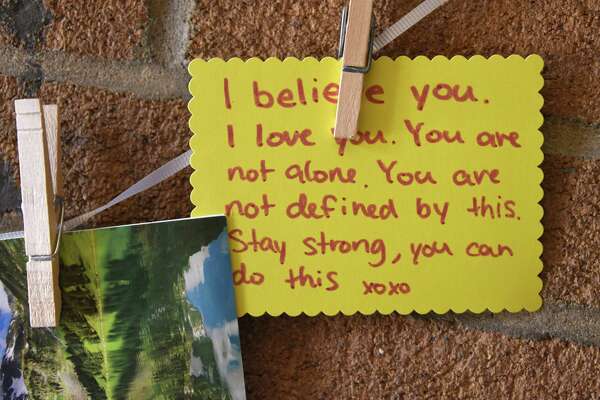 I believe you.
I love you. You are
not alone. You are
not defined by this.
Stay strong, you can
do this xoxo